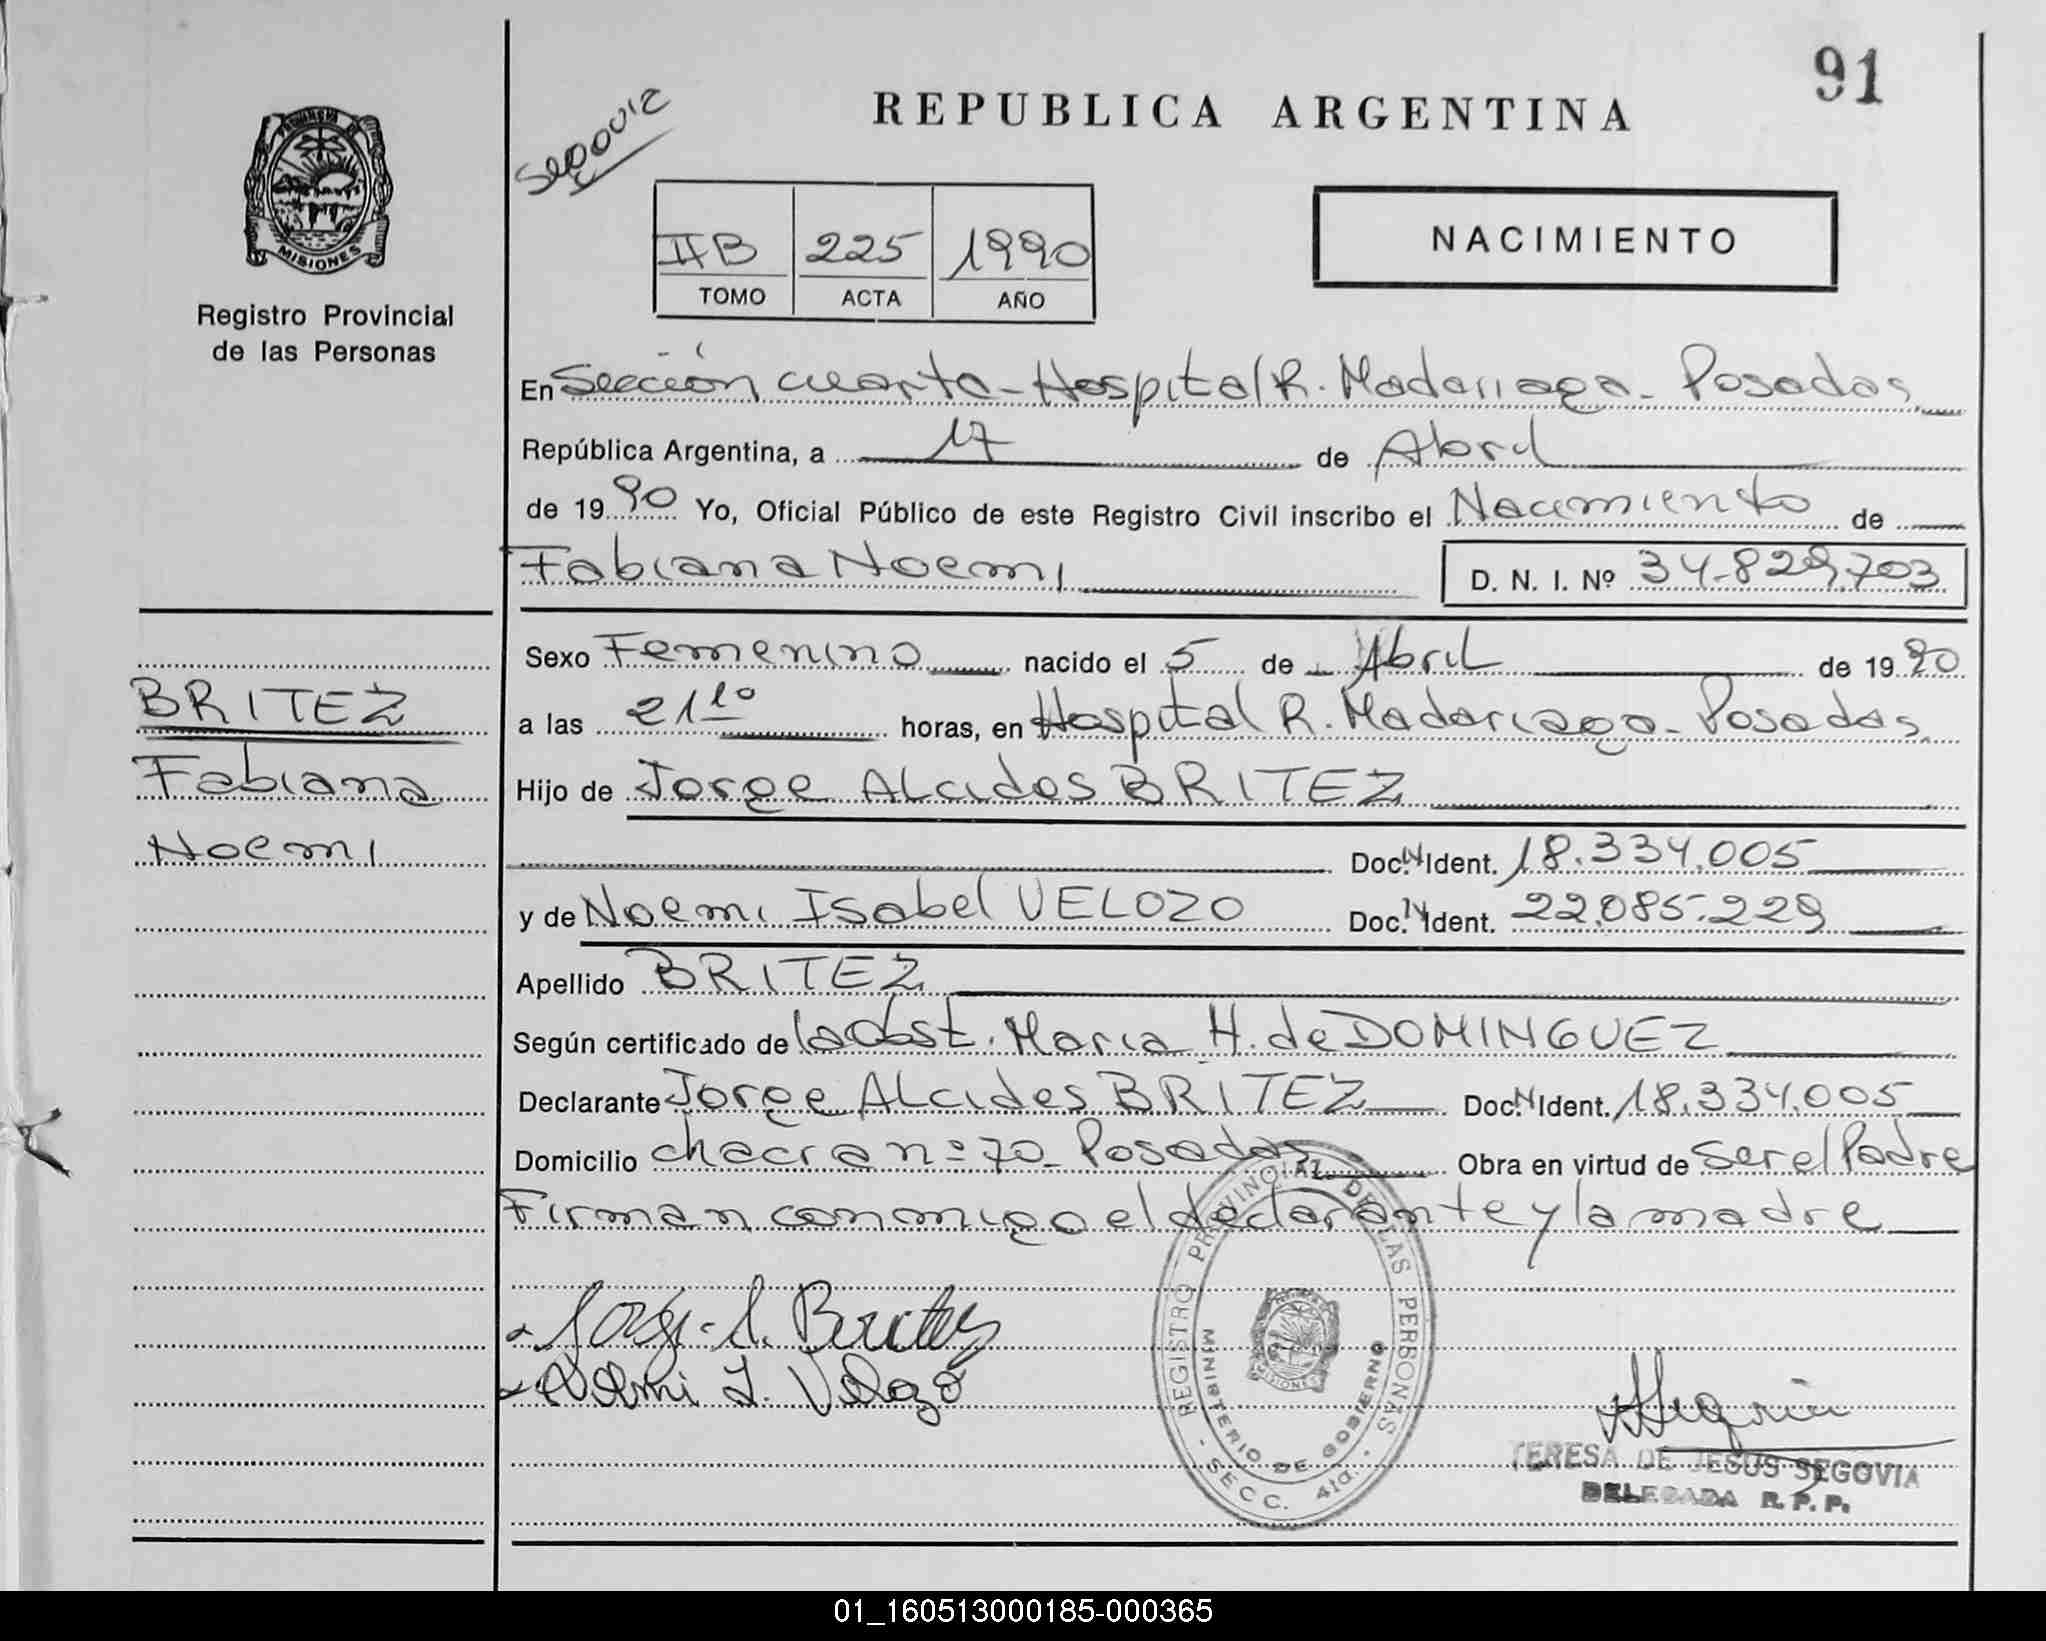 91
REPUBLICA ARGENTINA
Segovia
PROVINCIA DE
MISIONES
Registro Provincial
de las Personas
IIB 225 1990
TOMO ACTA AÑO
NACIMIENTO
En Sección cuarta - Hospital R. Madariaga - Posadas
República Argentina, a 17 de Abril
de 1990 Yo, Oficial Público de este Registro Civil inscribo el Nacimiento de
Fabiana Noemi D. N. I. Nº 34.829.703
Sexo Femenino nacido el 5 de Abril de 1990
BRITEZ
Fabiana
Noemi
a las 21 10 horas, en Hospital R. Madariaga - Posadas
Hijo de Jorge Alcides BRITEZ
Doc. N Ident. 18.334.005
y de Noemi Isabel VELOZO Doc. N Ident. 22.085.229
Apellido BRITEZ
Según certificado de la Obst. Maria H. de DOMINGUEZ
Declarante Jorge Alcides BRITEZ Doc. N Ident. 18.334.005
Domicilio chacra nº 70 - Posadas Obra en virtud de ser el Padre
Firman conmigo el declarante y la madre
Jorge A. Britez
Noemi I. Velozo
REGISTRO PROVINCIAL DE LAS PERSONAS
MINISTERIO DE GOBIERNO
MISIONES
- SECC. 4ta. -
TERESA DE JESUS SEGOVIA
DELEGADA R. P. P.
01_160513000185-000365